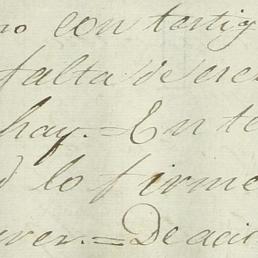 no con testig
falta de cre
hay. = En te
lo firme
ver. = De aci